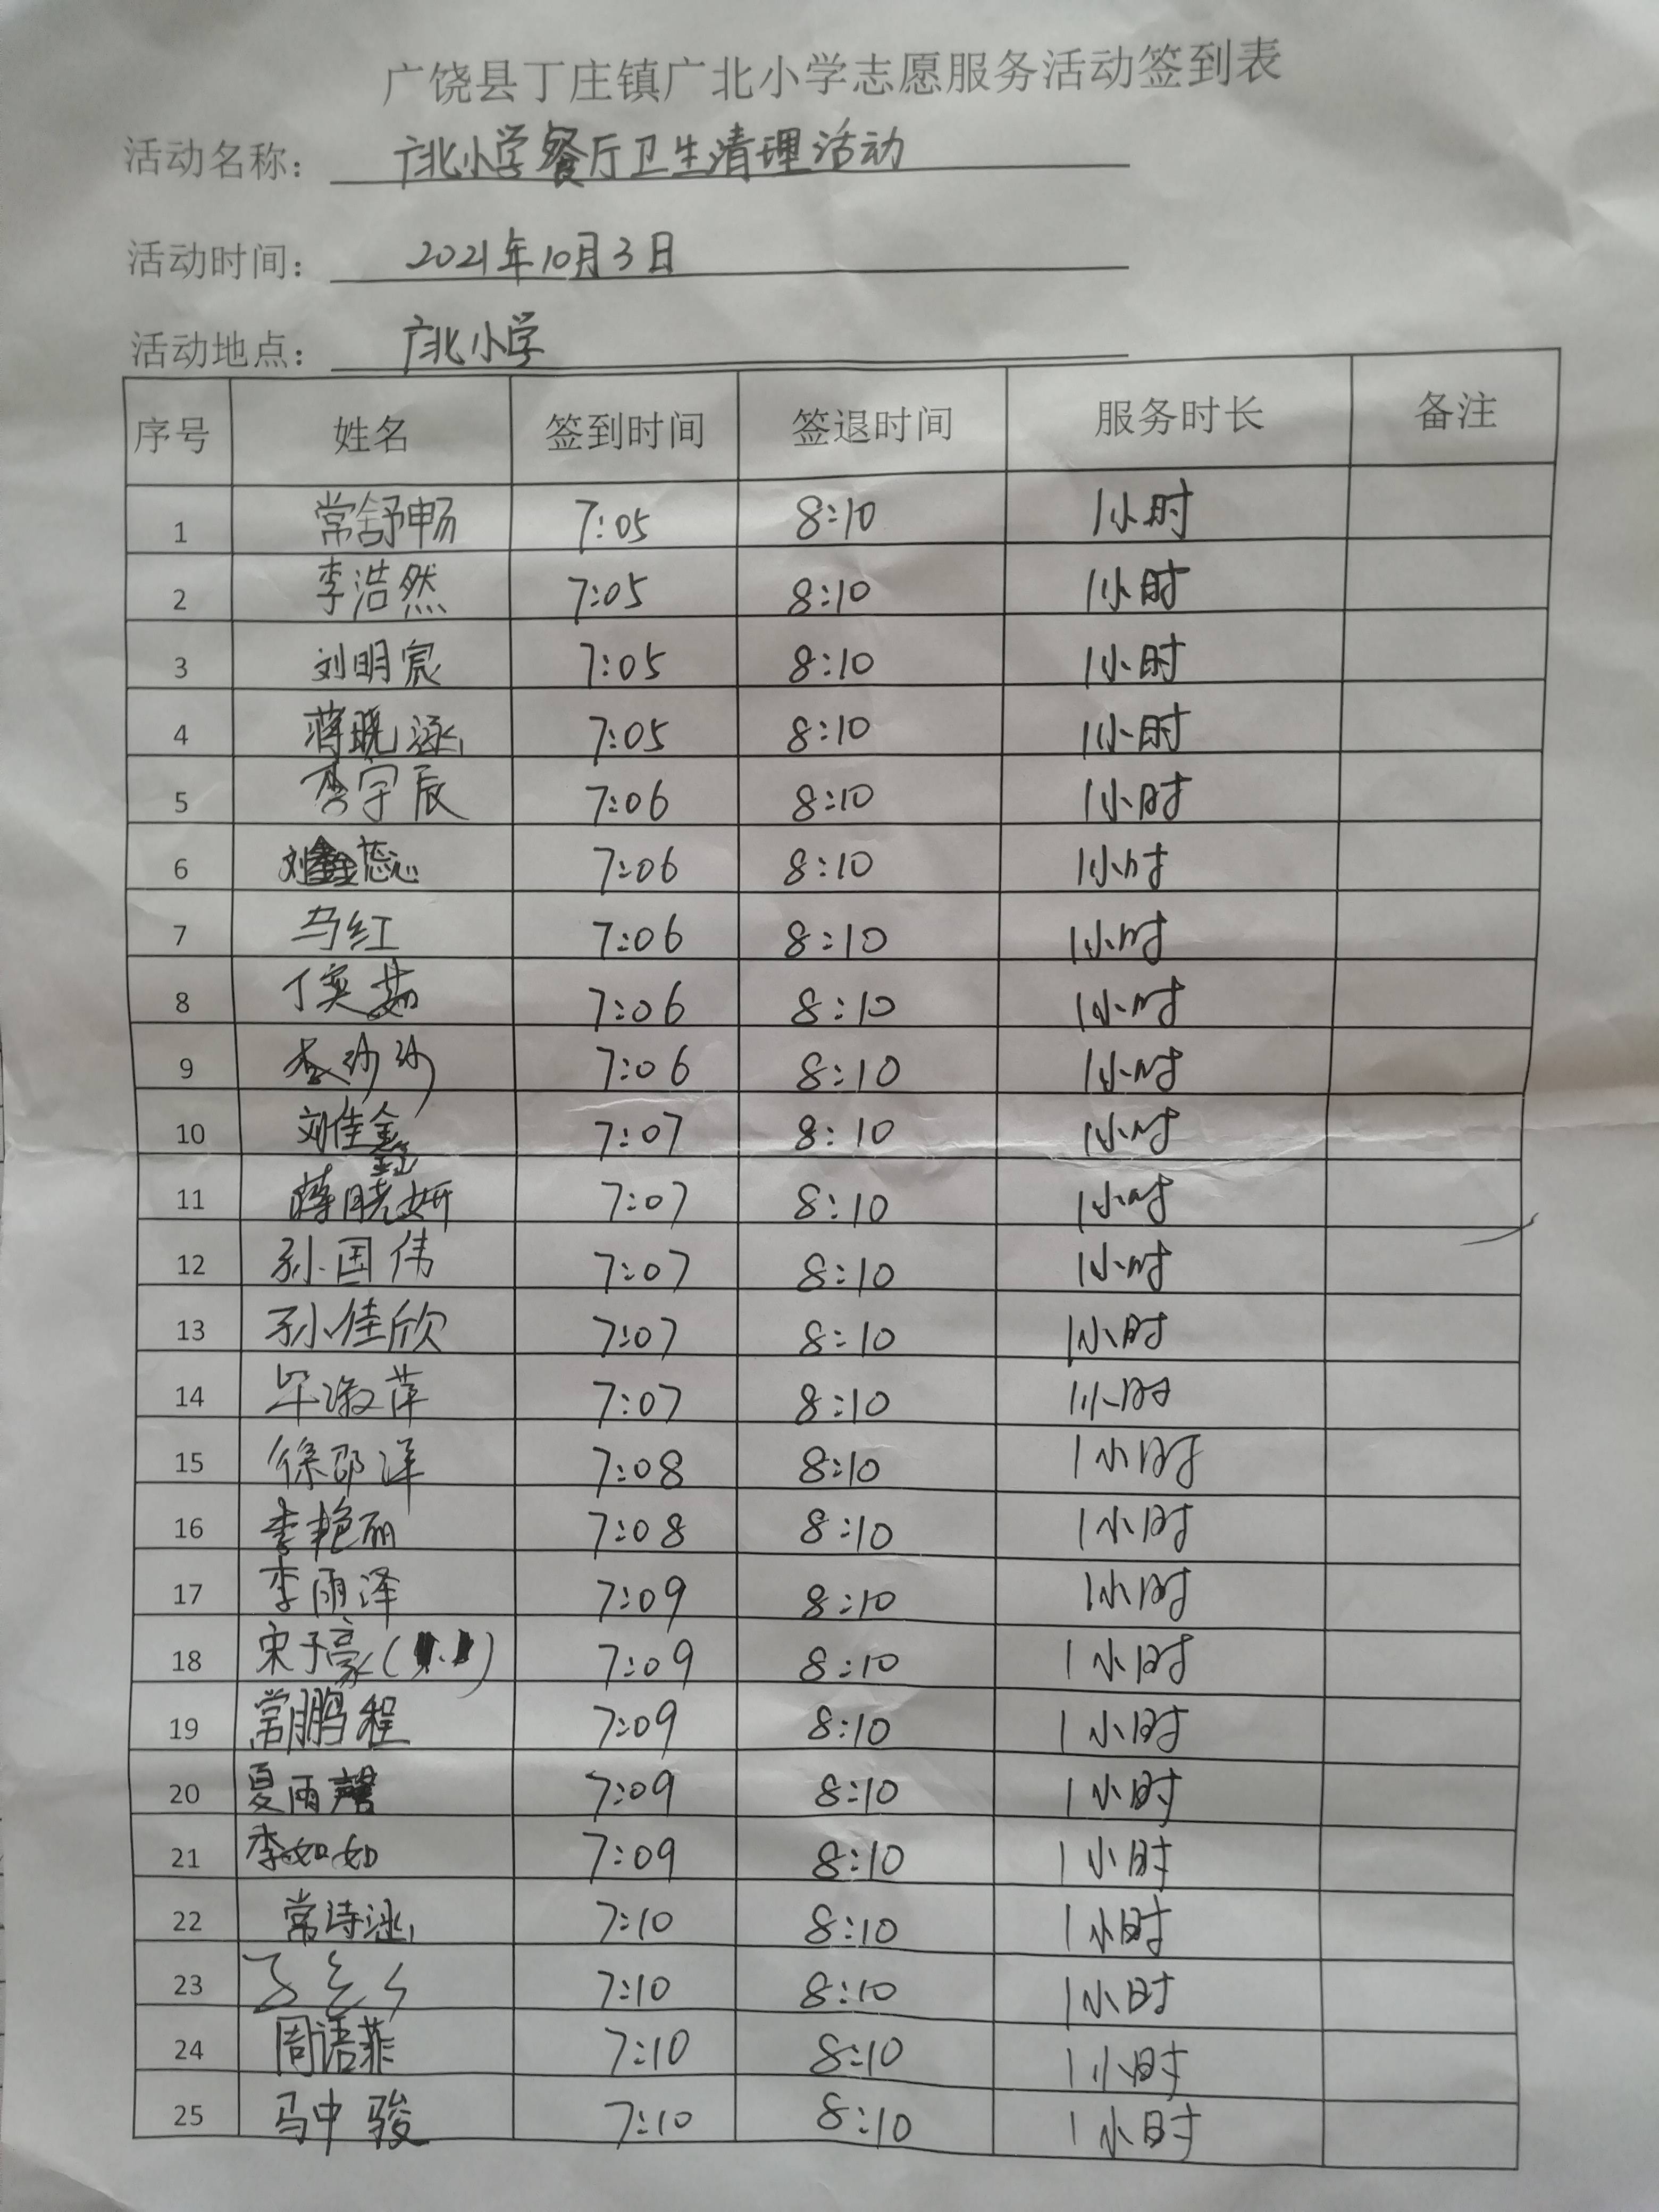 广饶县丁庄镇广北小学志愿服务活动签到表
活动名称： 广北小学餐厅卫生清理活动
活动时间： 2021年10月3日
活动地点： 广北小学
序号 姓名 签到时间 签退时间 服务时长 备注
1 常舒畅 7:05 8:10 1小时
2 李浩然 7:05 8:10 1小时
3 刘明宸 7:05 8:10 1小时
4 蒋晓泳 7:05 8:10 1小时
5 李宇辰 7:06 8:10 1小时
6 刘蕊 7:06 8:10 1小时
7 马红 7:06 8:10 1小时
8 丁奕茹 7:06 8:10 1小时
9 李沙沙 7:06 8:10 1小时
10 刘佳鑫 7:07 8:10 1小时
11 蒋晓妍 7:07 8:10 1小时
12 孙国伟 7:07 8:10 1小时
13 孙佳欣 7:07 8:10 1小时
14 毕淑萍 7:07 8:10 1小时
15 徐邵洋 7:08 8:10 1小时
16 李艳丽 7:08 8:10 1小时
17 李雨泽 7:09 8:10 1小时
18 宋子豪 7:09 8:10 1小时
19 常鹏程 7:09 8:10 1小时
20 夏雨馨 7:09 8:10 1小时
21 李如如 7:09 8:10 1小时
22 常诗泳 7:10 8:10 1小时
23 7:10 8:10 1小时
24 周语菲 7:10 8:10 1小时
25 马中骏 7:10 8:10 1小时